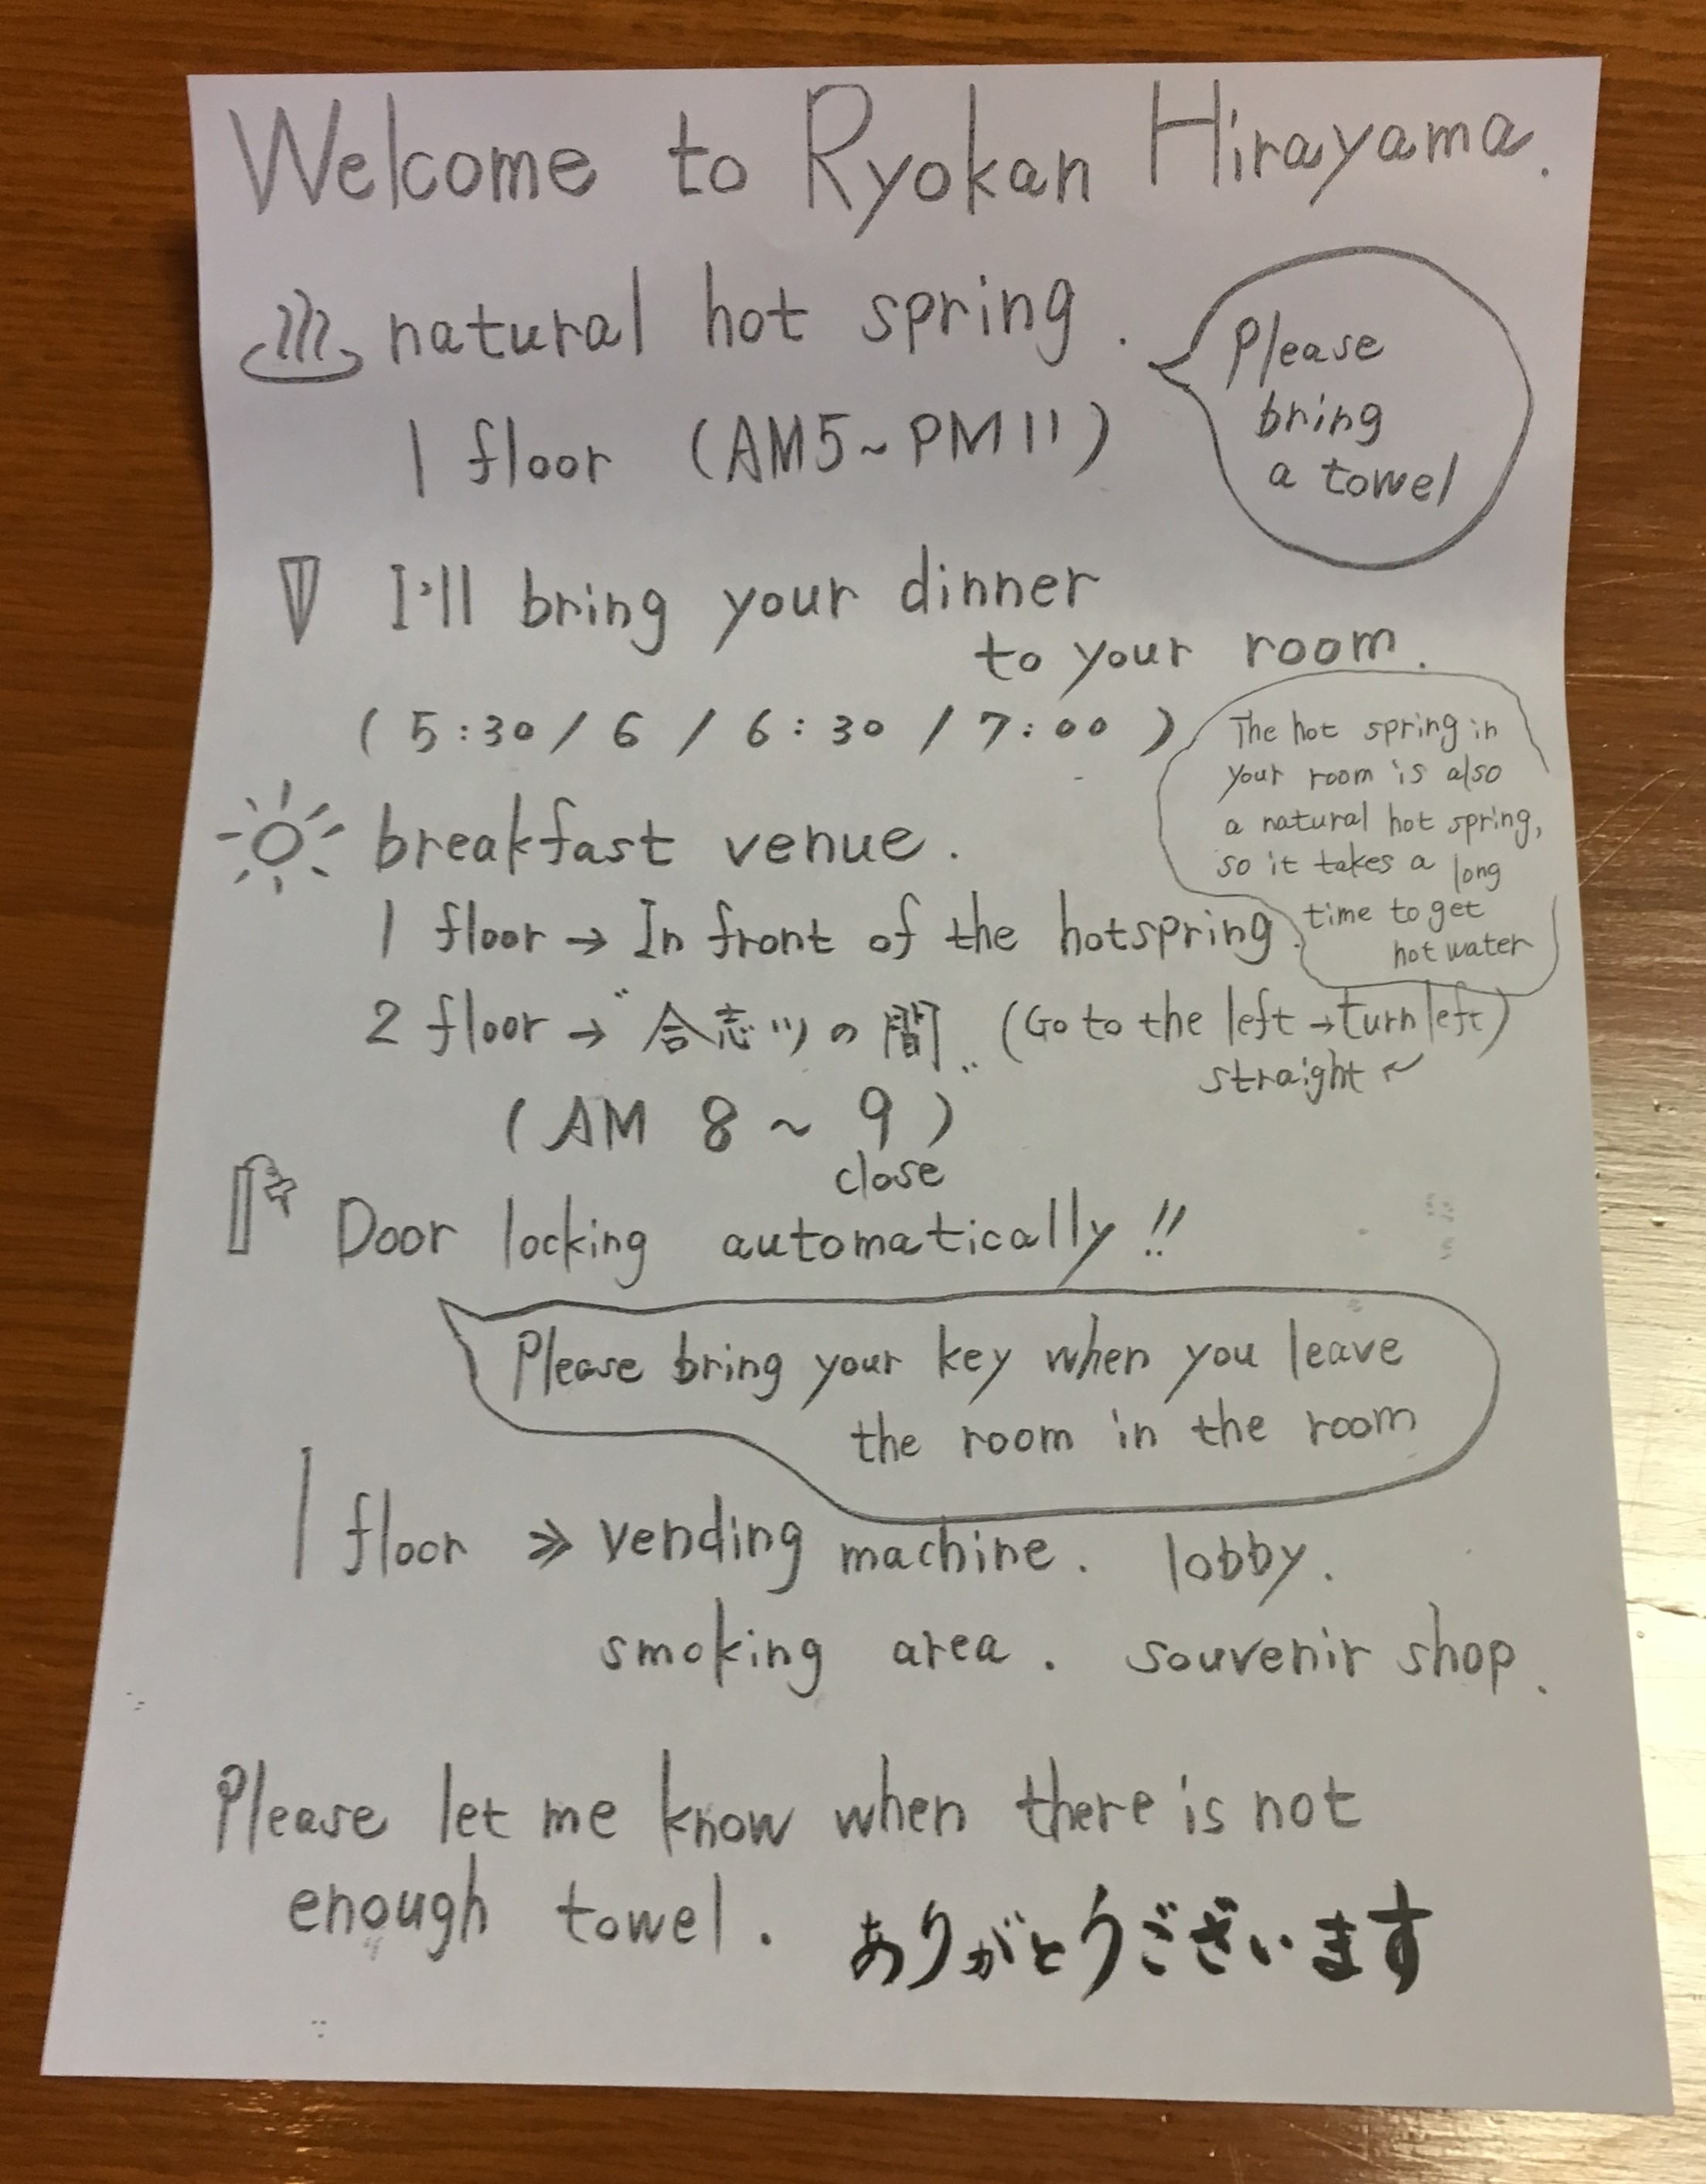 Welcome to Ryokan Hirayama.
natural hot spring.
Please
bring
a towel
1 floor (AM5~PM11)
I'll bring your dinner
to your room.
(5:30/6/6:30/7:00)
The hot spring in
your room is also
a natural hot spring,
so it takes a long
time to get
hot water
breakfast venue.
1 floor → In front of the hotspring.
2 floor → "合志ツの間" (Go to the left → turn left)
straight
(AM 8 ~ 9)
close
Door locking automatically!!
Please bring your key when you leave
the room in the room
1 floor ≫ vending machine. lobby.
smoking area. souvenir shop.
Please let me know when there is not
enough towel. ありがとうございます